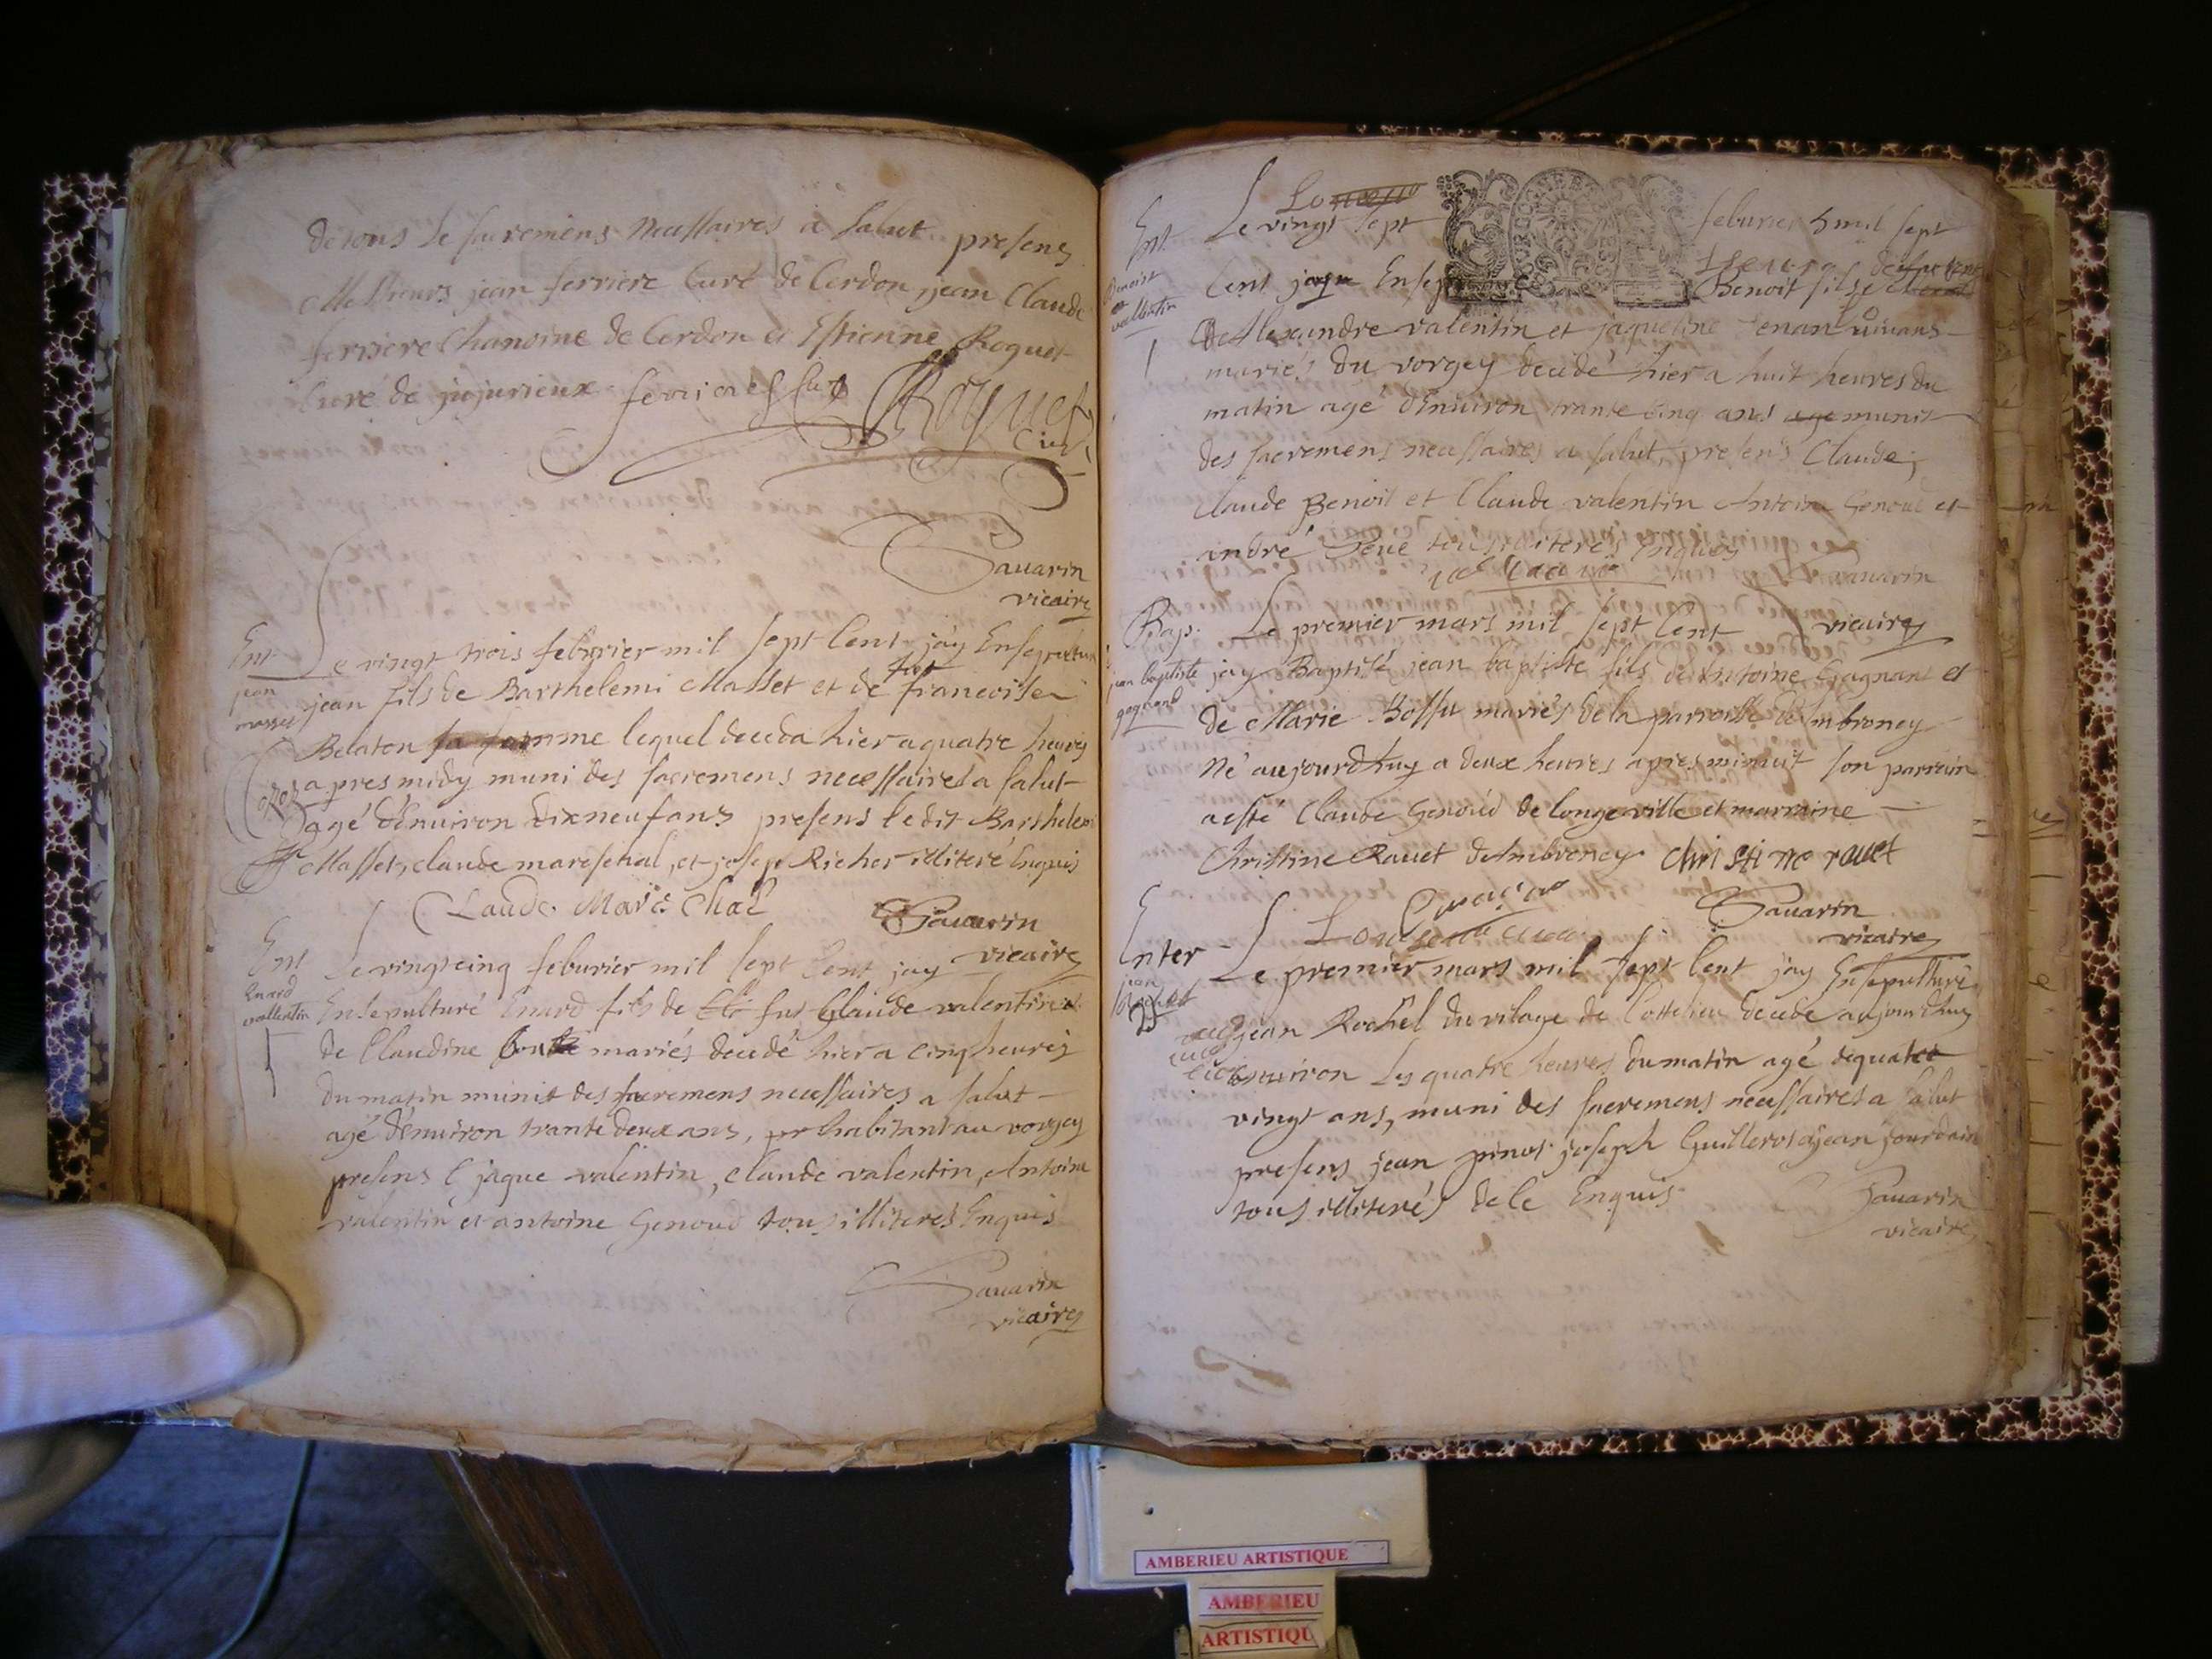 de tous le sacremens necessaires a salut presens
Messieurs jean ferriere Curé de Cerdon jean Claude
ferriere Chanoine de Cerdon et Estienne Roquet
Curé de jujurieux
Roquet
Curé
Savarin
vicaire
Ent
jean
masset
Le vingt trois febvrier mil sept Cent jay Ensepulturé
jean fils de Barthelemi Masset et de francoise
Belaton femme lequel deceda hier a quatre heures
apres midy muni des sacremens necessaires a salut
agé d'enuiron dixneuf ans presens ledit Barthelemi
Masset, claude mareschal, et josep Richer illiteré Enquis
Claude Mareschal
Savarin
vicaire
Ent
Enard
vallentin
Le vingt cinq feburier mil sept Cent jay
Ensepulturé Enard fils de fut Claude valentin et
de Claudine mariés decedé hier a cinq heures
du matin munit des sacremens necessaires a salut
agé d'enuiron trante deux ans, habitant au vorgey
presens jaque valentin, claude valentin, Antoine
valentin et antoine Genoud tous illiteres Enquis
Savarin
vicaire
Ent
Benoist
vallentin
Le vingt sept feburier mil sept
Cent jay
Benoit fils
de Alexandre valentin et jaqueline vivans
mariés du vorgey decedé hier a huit heures du
matin agé d'Enuiron trante cinq ans munit
des sacremens necessaires a salut, presens Claude,
Claude Benoit et Claude valentin Antoine Genoud et
andré tous illiterés Enquis
Savarin
vicaire
Bap.
jean baptiste
gagnand
Le premier mars mil sept Cent
jay Baptisé jean baptiste fils de Antoine Gagnant et
de Marie Bossu mariés de la parroisse de Ambroney
Né aujourdhuy a deux heures apres minuit son parrain
a esté Claude Genoud de longeville et marraine
Christine Ravet de Ambroney Christine rauet
Savarin
vicaire
Enter
jean
Rochel
Le premier mars mil sept Cent jay Ensepulturé
jean Rochel du vilage de Cottelieu decede aujourdhuy
enuiron les quatre heures du matin agé de quatre
vingt ans, muni des sacremens necessaires a salut
presens jean pinot joseph Guillerot et jean jourdain
tous illiterés de le Enquis
Savarin
vicaire
AMBERIEU ARTISTIQUE
AMBERIEU
ARTISTIQU